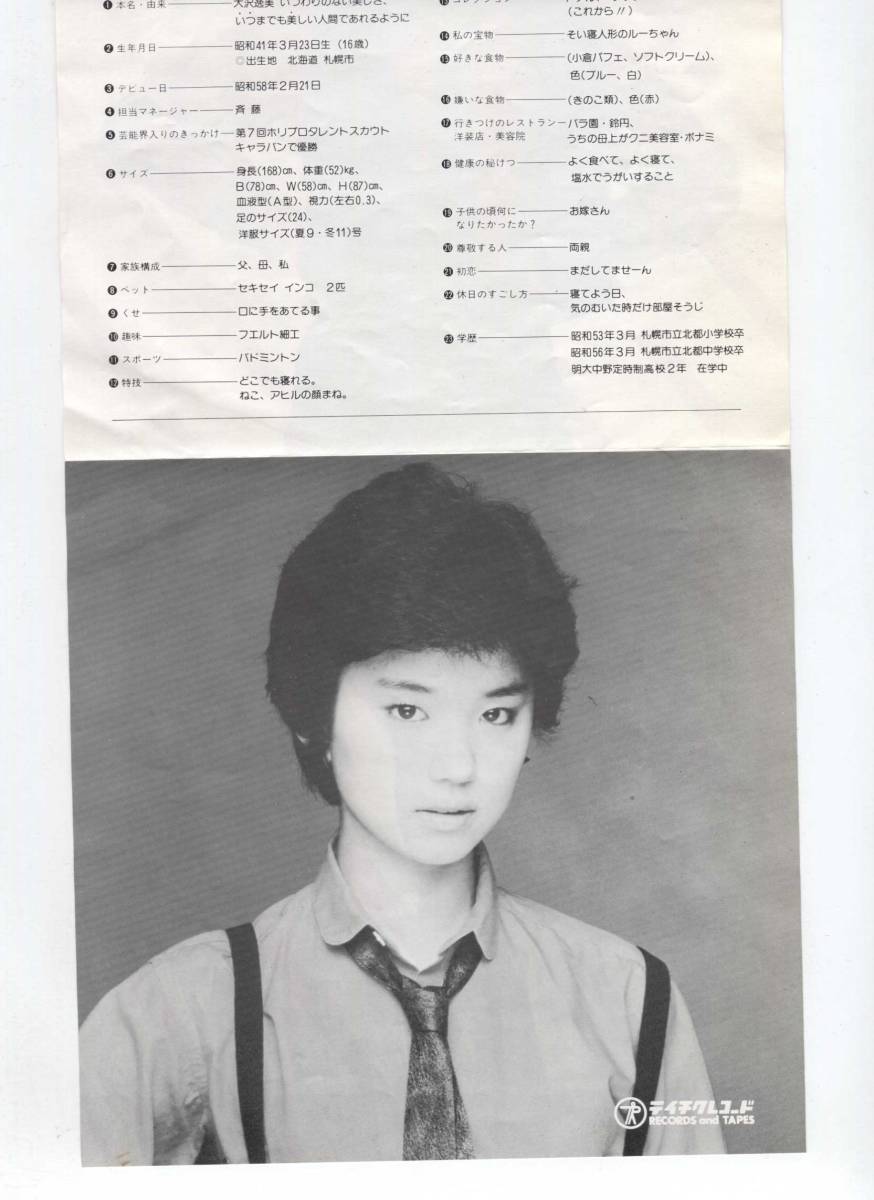 ❶本名・由来 大沢逸美 いつわりのない美しさ、
いつまでも美しい人間であれるように
❷生年月日 昭和41年3月23日生(16歳)
◎出生地 北海道 札幌市
❸デビュー日 昭和58年2月21日
❹担当マネージャー 斉藤
❺芸能界入りのきっかけ 第7回ホリプロタレントスカウト
キャラバンで優勝
❻サイズ 身長(168)㎝、体重(52)㎏、
B(78)㎝、W(58)㎝、H(87)㎝、
血液型(A型)、視力(左右0.3)、
足のサイズ(24)、
洋服サイズ(夏9・冬11)号
❼家族構成 父、母、私
❽ペット セキセイ インコ 2匹
❾くせ 口に手をあてる事
❿趣味 フエルト細工
⓫スポーツ バドミントン
⓬特技 どこでも寝れる。
ねこ、アヒルの顔まね。
⓭コレクション
(これから!!)
⓮私の宝物 そい寝人形のルーちゃん
⓯好きな食物 (小倉パフェ、ソフトクリーム)、
色(ブルー、白)
⓰嫌いな食物 (きのこ類)、色(赤)
⓱行きつけのレストラン バラ園・鈴円、
洋装店・美容院 うちの母上がクニ美容室・ボナミ
⓲健康の秘けつ よく食べて、よく寝て、
塩水でうがいすること
⓳子供の頃何に お嫁さん
なりたかったか?
⓴尊敬する人 両親
㉑初恋 まだしてませーん
㉒休日のすごし方 寝てよう日、
気のむいた時だけ部屋そうじ
㉓学歴 昭和53年3月 札幌市立北都小学校卒
昭和56年3月 札幌市立北都中学校卒
明大中野定時制高校2年 在学中
テイチクレコード
RECORDS and TAPES